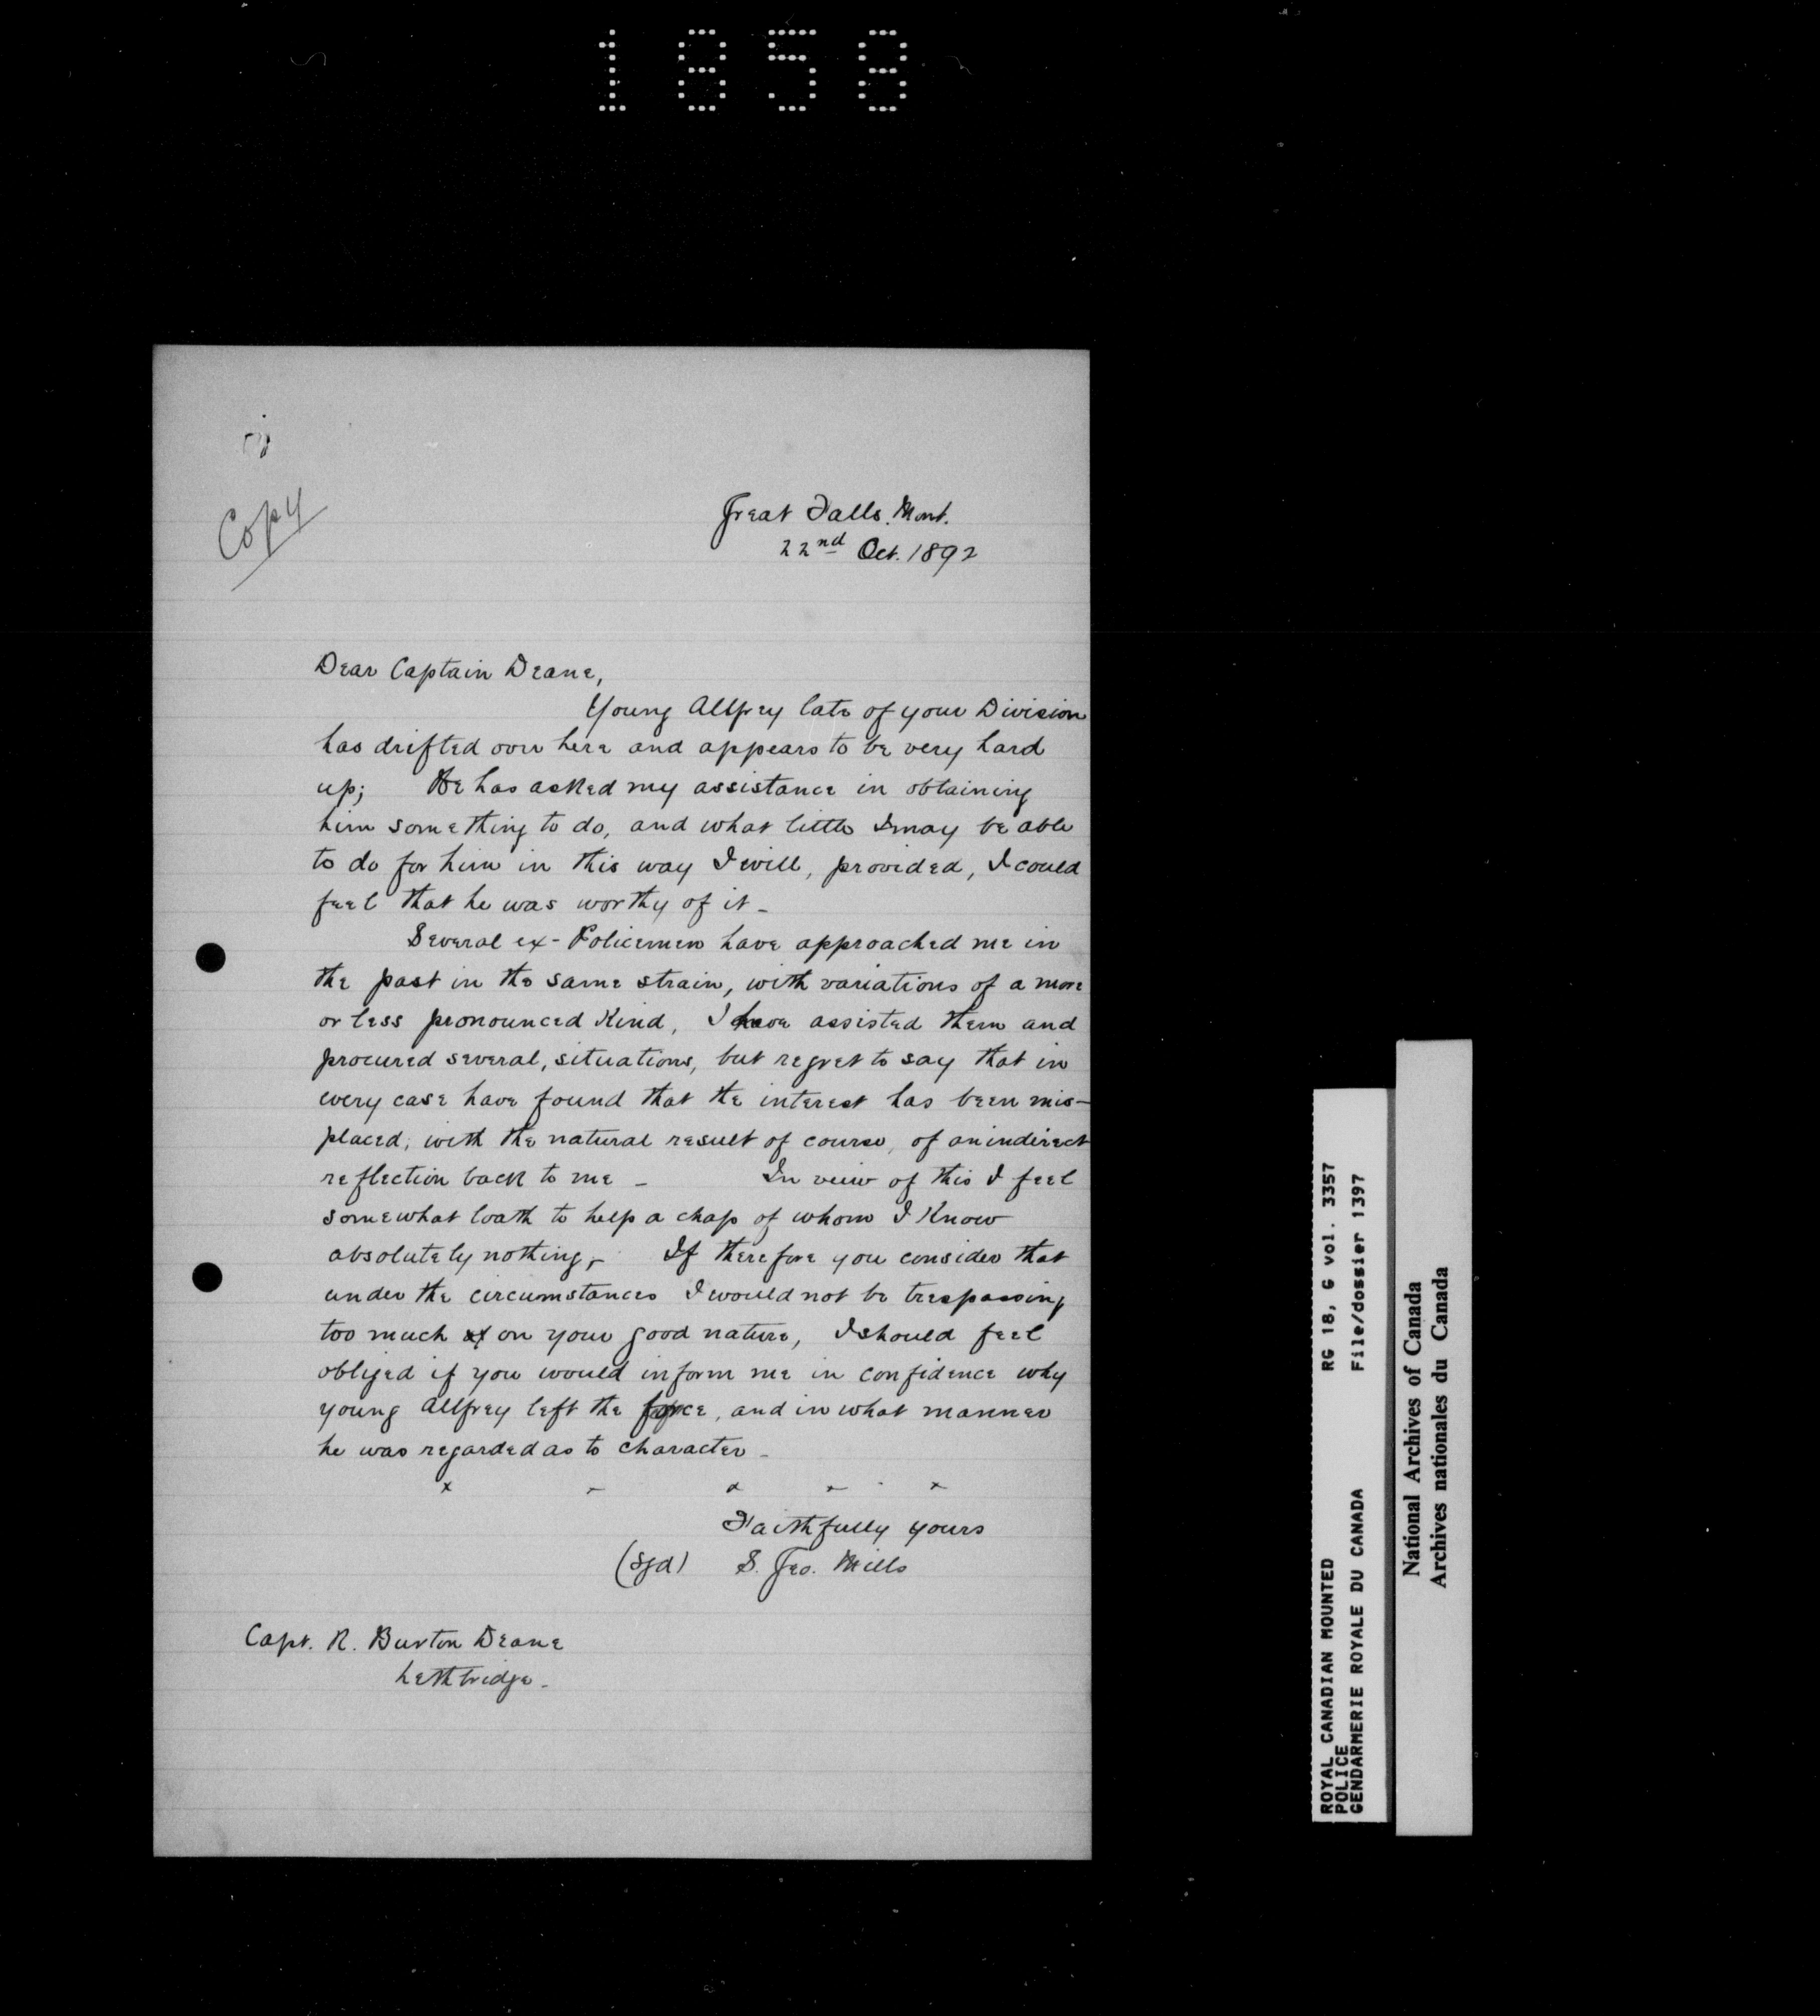 1858
Copy
Great Falls. Mont.
22nd Oct. 1892
Dear Captain Deane,
Young Allfrey late of your Division
has drifted over here and appears to be very hard
up; He has asked my assistance in obtaining
him something to do, and what little I may be able
to do for him in this way I will, provided, I could
feel that he was worthy of it -
Several ex-Policemen have approached me in
the past in the same strain, with variations of a more
or less pronounced Kind, I have assisted them and
procured several, situations, but regret to say that in
every case have found that the interest has been mis-
placed, with the natural result of course, of an indirect
reflection back to me - In view of this I feel
somewhat loath to help a chap of whom I Know
absolutely nothing, - If therefore you consider that
under the circumstances I would not be trespassing
too much on your good nature, I should feel
obliged if you would inform me in confidence why
young Allfrey left the force, and in what manner
he was regarded as to character -
x - x - x
Faithfully yours
(Sgd) S. Geo. Mills
Capt. R. Burton Deane
Lethbridge -
ROYAL CANADIAN MOUNTED RG 18, G vol. 3357
POLICE
GENDARMERIE ROYALE DU CANADA File/dossier 1397
National Archives of Canada
Archives nationales du Canada